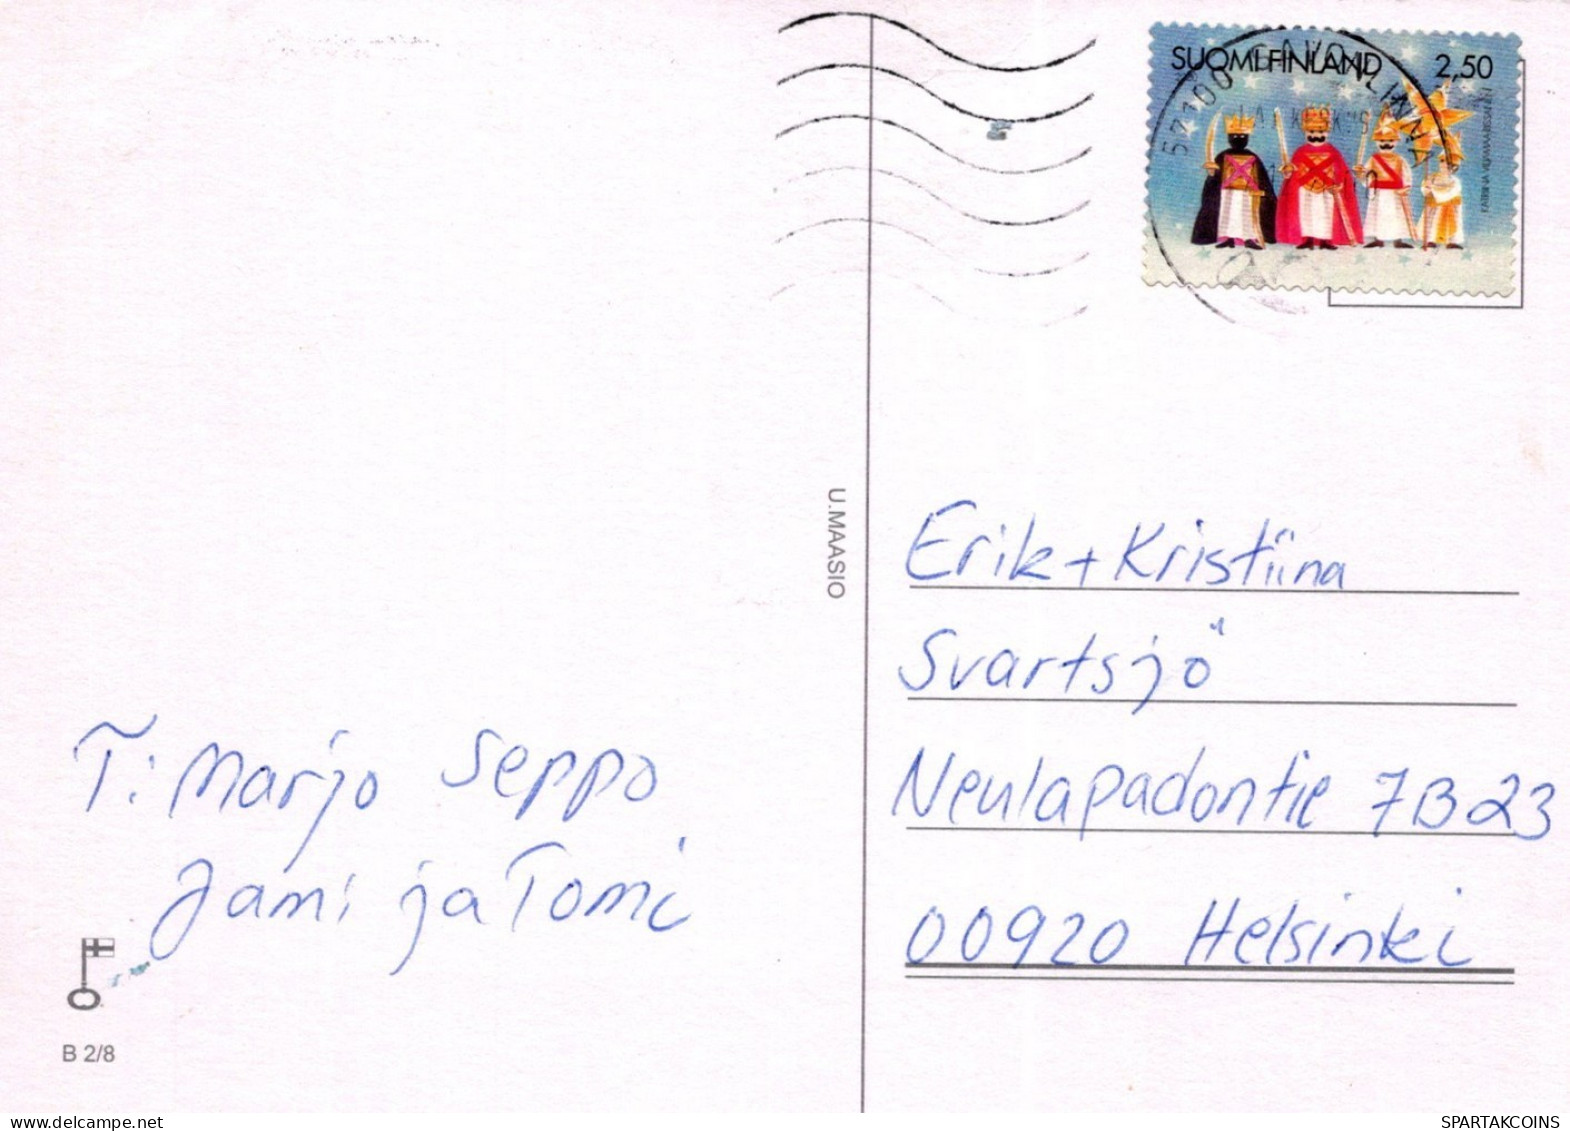 SUOMI FINLAND 2,50
57100 SAVONLINNA
U.MAASIO
Erik + Kristiina
Svartsjö
Neulapadontie 7B23
00920 Helsinki
T: Marjo Seppo
Jami ja Tomi
B 2/8
SPARTAKCOINS